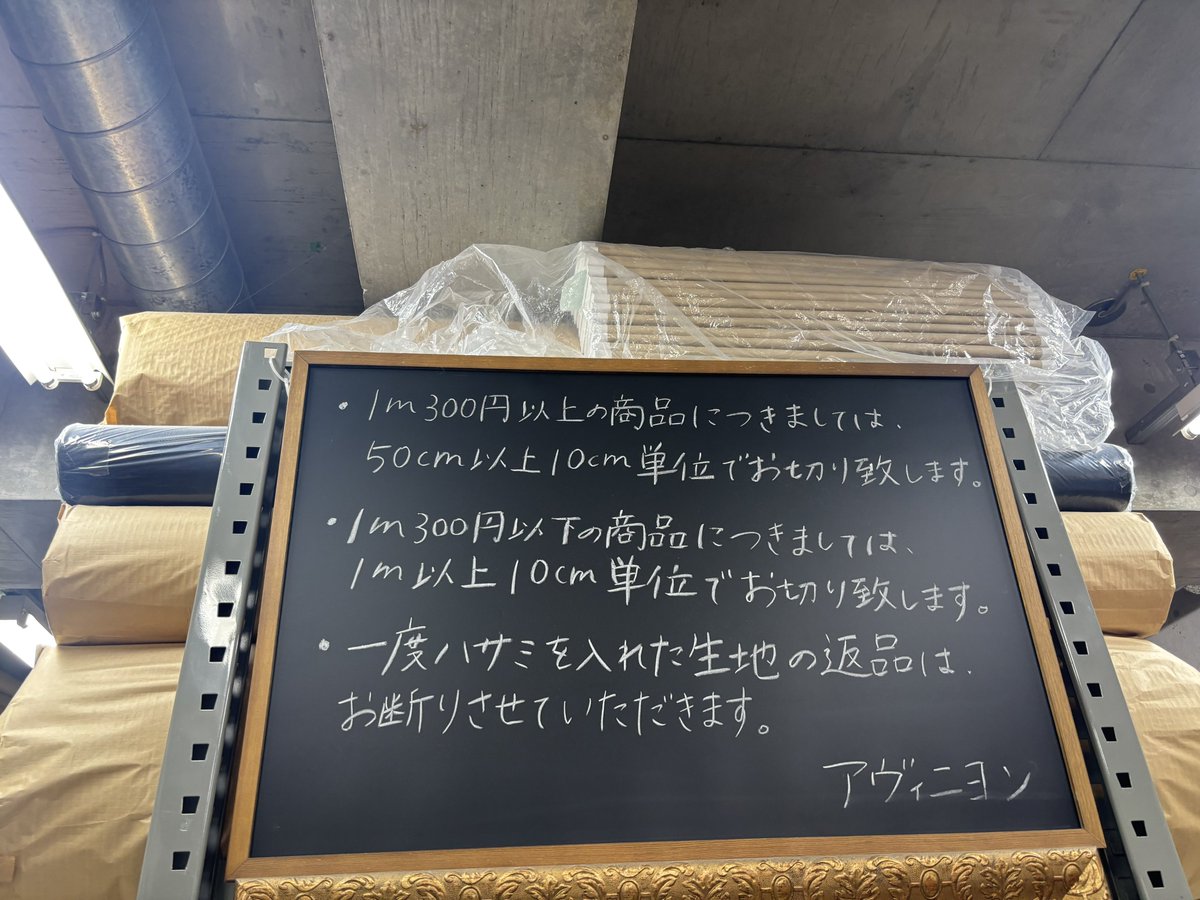 ・1m300円以上の商品につきましては、
50cm以上10cm単位でお切り致します。
・1m300円以下の商品につきましては、
1m以上10cm単位でお切り致します。
・一度ハサミを入れた生地の返品は、
お断りさせていただきます。
アヴィニヨン